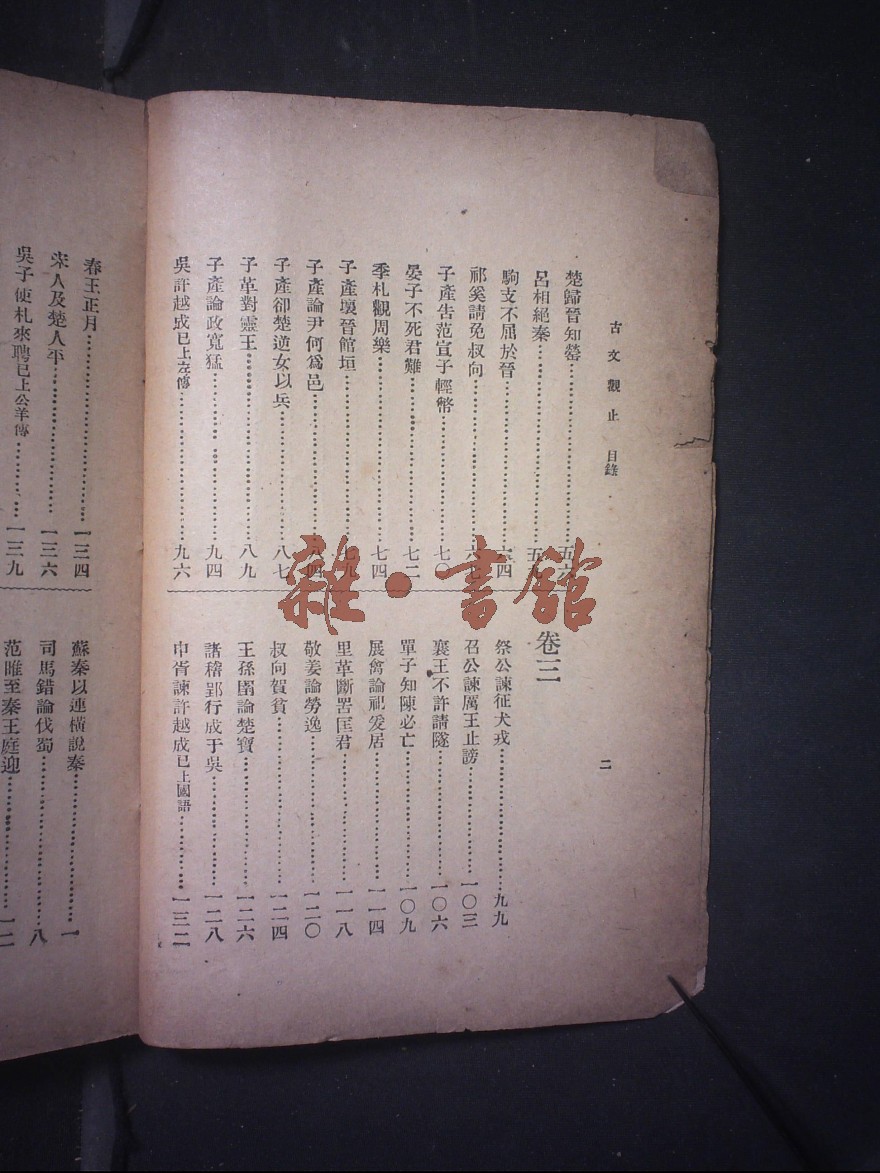 古文觀止 目錄
二
楚歸晉知罃 五六
呂相絕秦 五九
駒支不屈於晉 六四
祁奚請免叔向
子產告范宣子輕幣 七〇
晏子不死君難 七二
季札觀周樂 七四
子產壞晉館垣 七九
子產論尹何爲邑 八四
子產卻楚逆女以兵 八七
子革對靈王 八九
子產論政寬猛 九四
吳許越成已上左傳 九六
卷三
祭公諫征犬戎 九九
召公諫厲王止謗 一〇三
襄王不許請隧 一〇六
單子知陳必亡 一〇九
展禽論祀爰居 一一四
里革斷罟匡君 一一八
敬姜論勞逸 一二〇
叔向賀貧 一二四
王孫圉論楚寶 一二六
諸稽郢行成于吳 一二八
申胥諫許越成已上國語 一三二
春王正月 一三四
宋人及楚人平 一三六
吳子使札來聘已上公羊傳 一三九
蘇秦以連橫說秦 一
司馬錯論伐蜀 八
范雎至秦王庭迎 一二
雜·書館